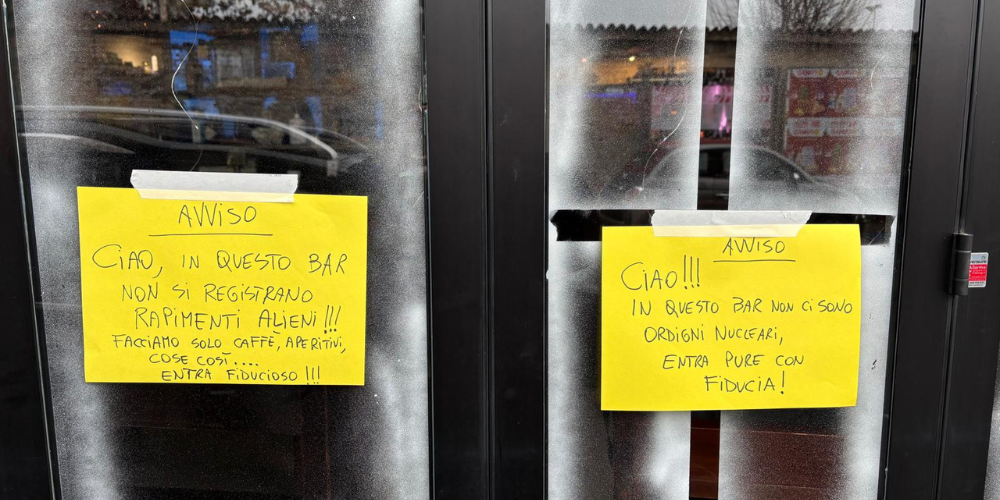 AVVISO
CIAO, IN QUESTO BAR
NON SI REGISTRANO
RAPIMENTI ALIENI!!!
FACCIAMO SOLO CAFFÈ, APERITIVI,
COSE COSÌ....
ENTRA FIDUCIOSO!!!
AVVISO
CIAO!!!
IN QUESTO BAR NON CI SONO
ORDIGNI NUCLEARI,
ENTRA PURE CON
FIDUCIA!